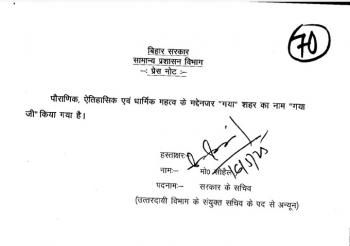 70
बिहार सरकार
सामान्य प्रशासन विभाग
–: प्रेस नोट :–
पौराणिक, ऐतिहासिक एवं धार्मिक महत्व के मद्देनजर "गया" शहर का नाम "गया
जी" किया गया है।
हस्ताक्षरः
नामः- मो० सोहैल
16/5/25
पदनामः- सरकार के सचिव
(उत्तरदायी विभाग के संयुक्त सचिव के पद से अन्यून)